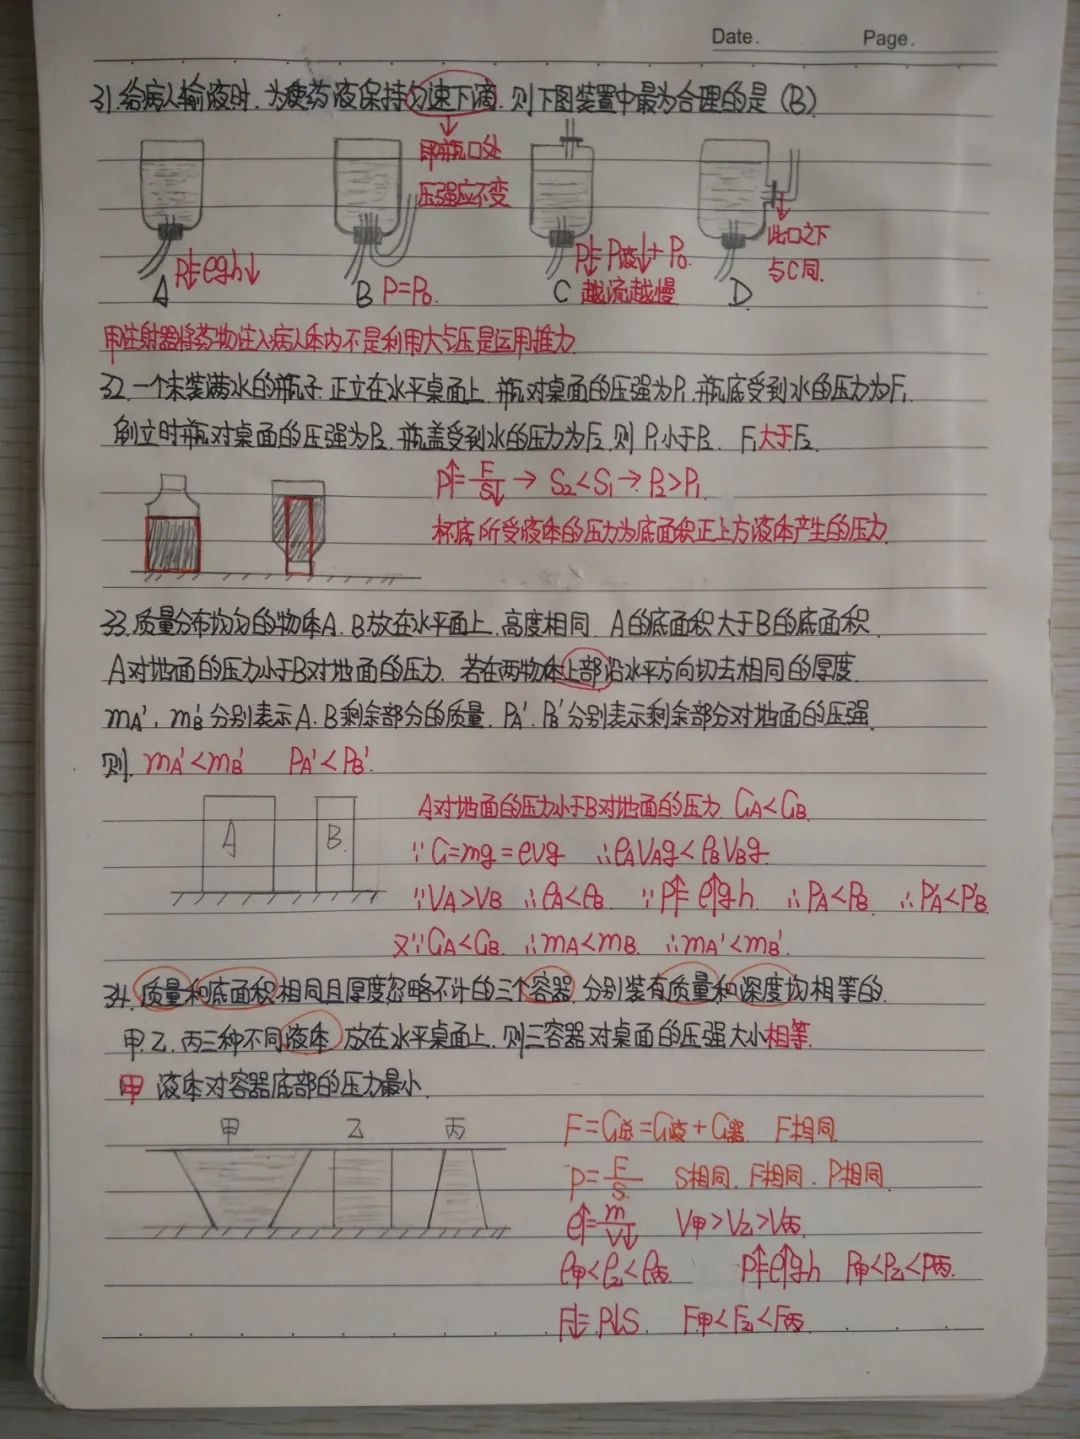 Date.   Page.
31.给病人输液时.为使药液保持匀速下滴.则下图装置中最为合理的是(B)
即瓶口处
压强应不变
此口之下
与C同.
P↓=ρgh↓
P=P₀.
P↓=P液↓+P₀.
A B C 越流越慢 D
甲注射器将药物注入病人体内不是利用大气压是运用推力.
32.一个未装满水的瓶子.正立在水平桌面上.瓶对桌面的压强为P₁.瓶底受到水的压力为F₁.
倒立时瓶对桌面的压强为P₂.瓶盖受到水的压力为F₂.则P₁小于P₂. F₁大于F₂.
P↑=F/S↓→S₂<S₁→P₂>P₁.
杯底所受液体的压力为底面积正上方液体产生的压力.
33.质量分布均匀的物体A.B放在水平面上.高度相同.A的底面积大于B的底面积.
A对地面的压力小于B对地面的压力.若在两物体上部沿水平方向切去相同的厚度.
mA'.mB'分别表示A.B剩余部分的质量.PA'.PB'分别表示剩余部分对地面的压强.
则.mA'<mB' PA'<PB'.
A B.
A对地面的压力小于B对地面的压力.GA<GB.
∵G=mg=ρvg ∴ρAVAg<ρBVBg.
∵VA>VB ∴ρA<ρB. ∵P↑=ρ↑gh. ∴PA<PB. ∴P'A<P'B.
又∵GA<GB.∴mA<mB.∴mA'<mB'.
34.质量和底面积相同且厚度忽略不计的三个容器.分别装有质量和深度均相等的.
甲.乙.丙三种不同液体.放在水平桌面上.则三容器对桌面的压强大小相等.
甲 液体对容器底部的压力最小.
甲 乙 丙
F=G总=G液+G器. F相同.
P=F/S. S相同.F相同.P相同.
ρ↑=m/V↓ V甲>V乙>V丙.
ρ甲<ρ乙<ρ丙. P↑=ρ↑gh P甲<P乙<P丙.
F↓=P↓S. F甲<F乙<F丙.